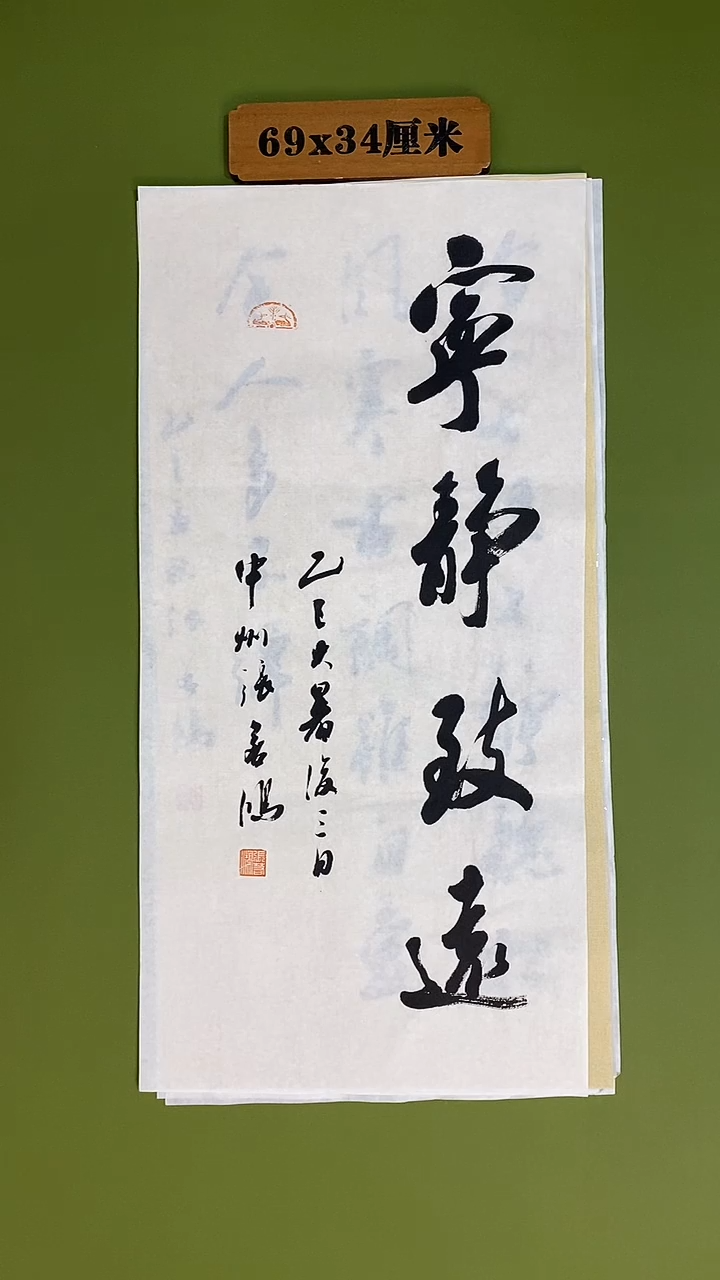 69x34厘米
寧静致遠
乙巳大暑後三日
中州張善鴻